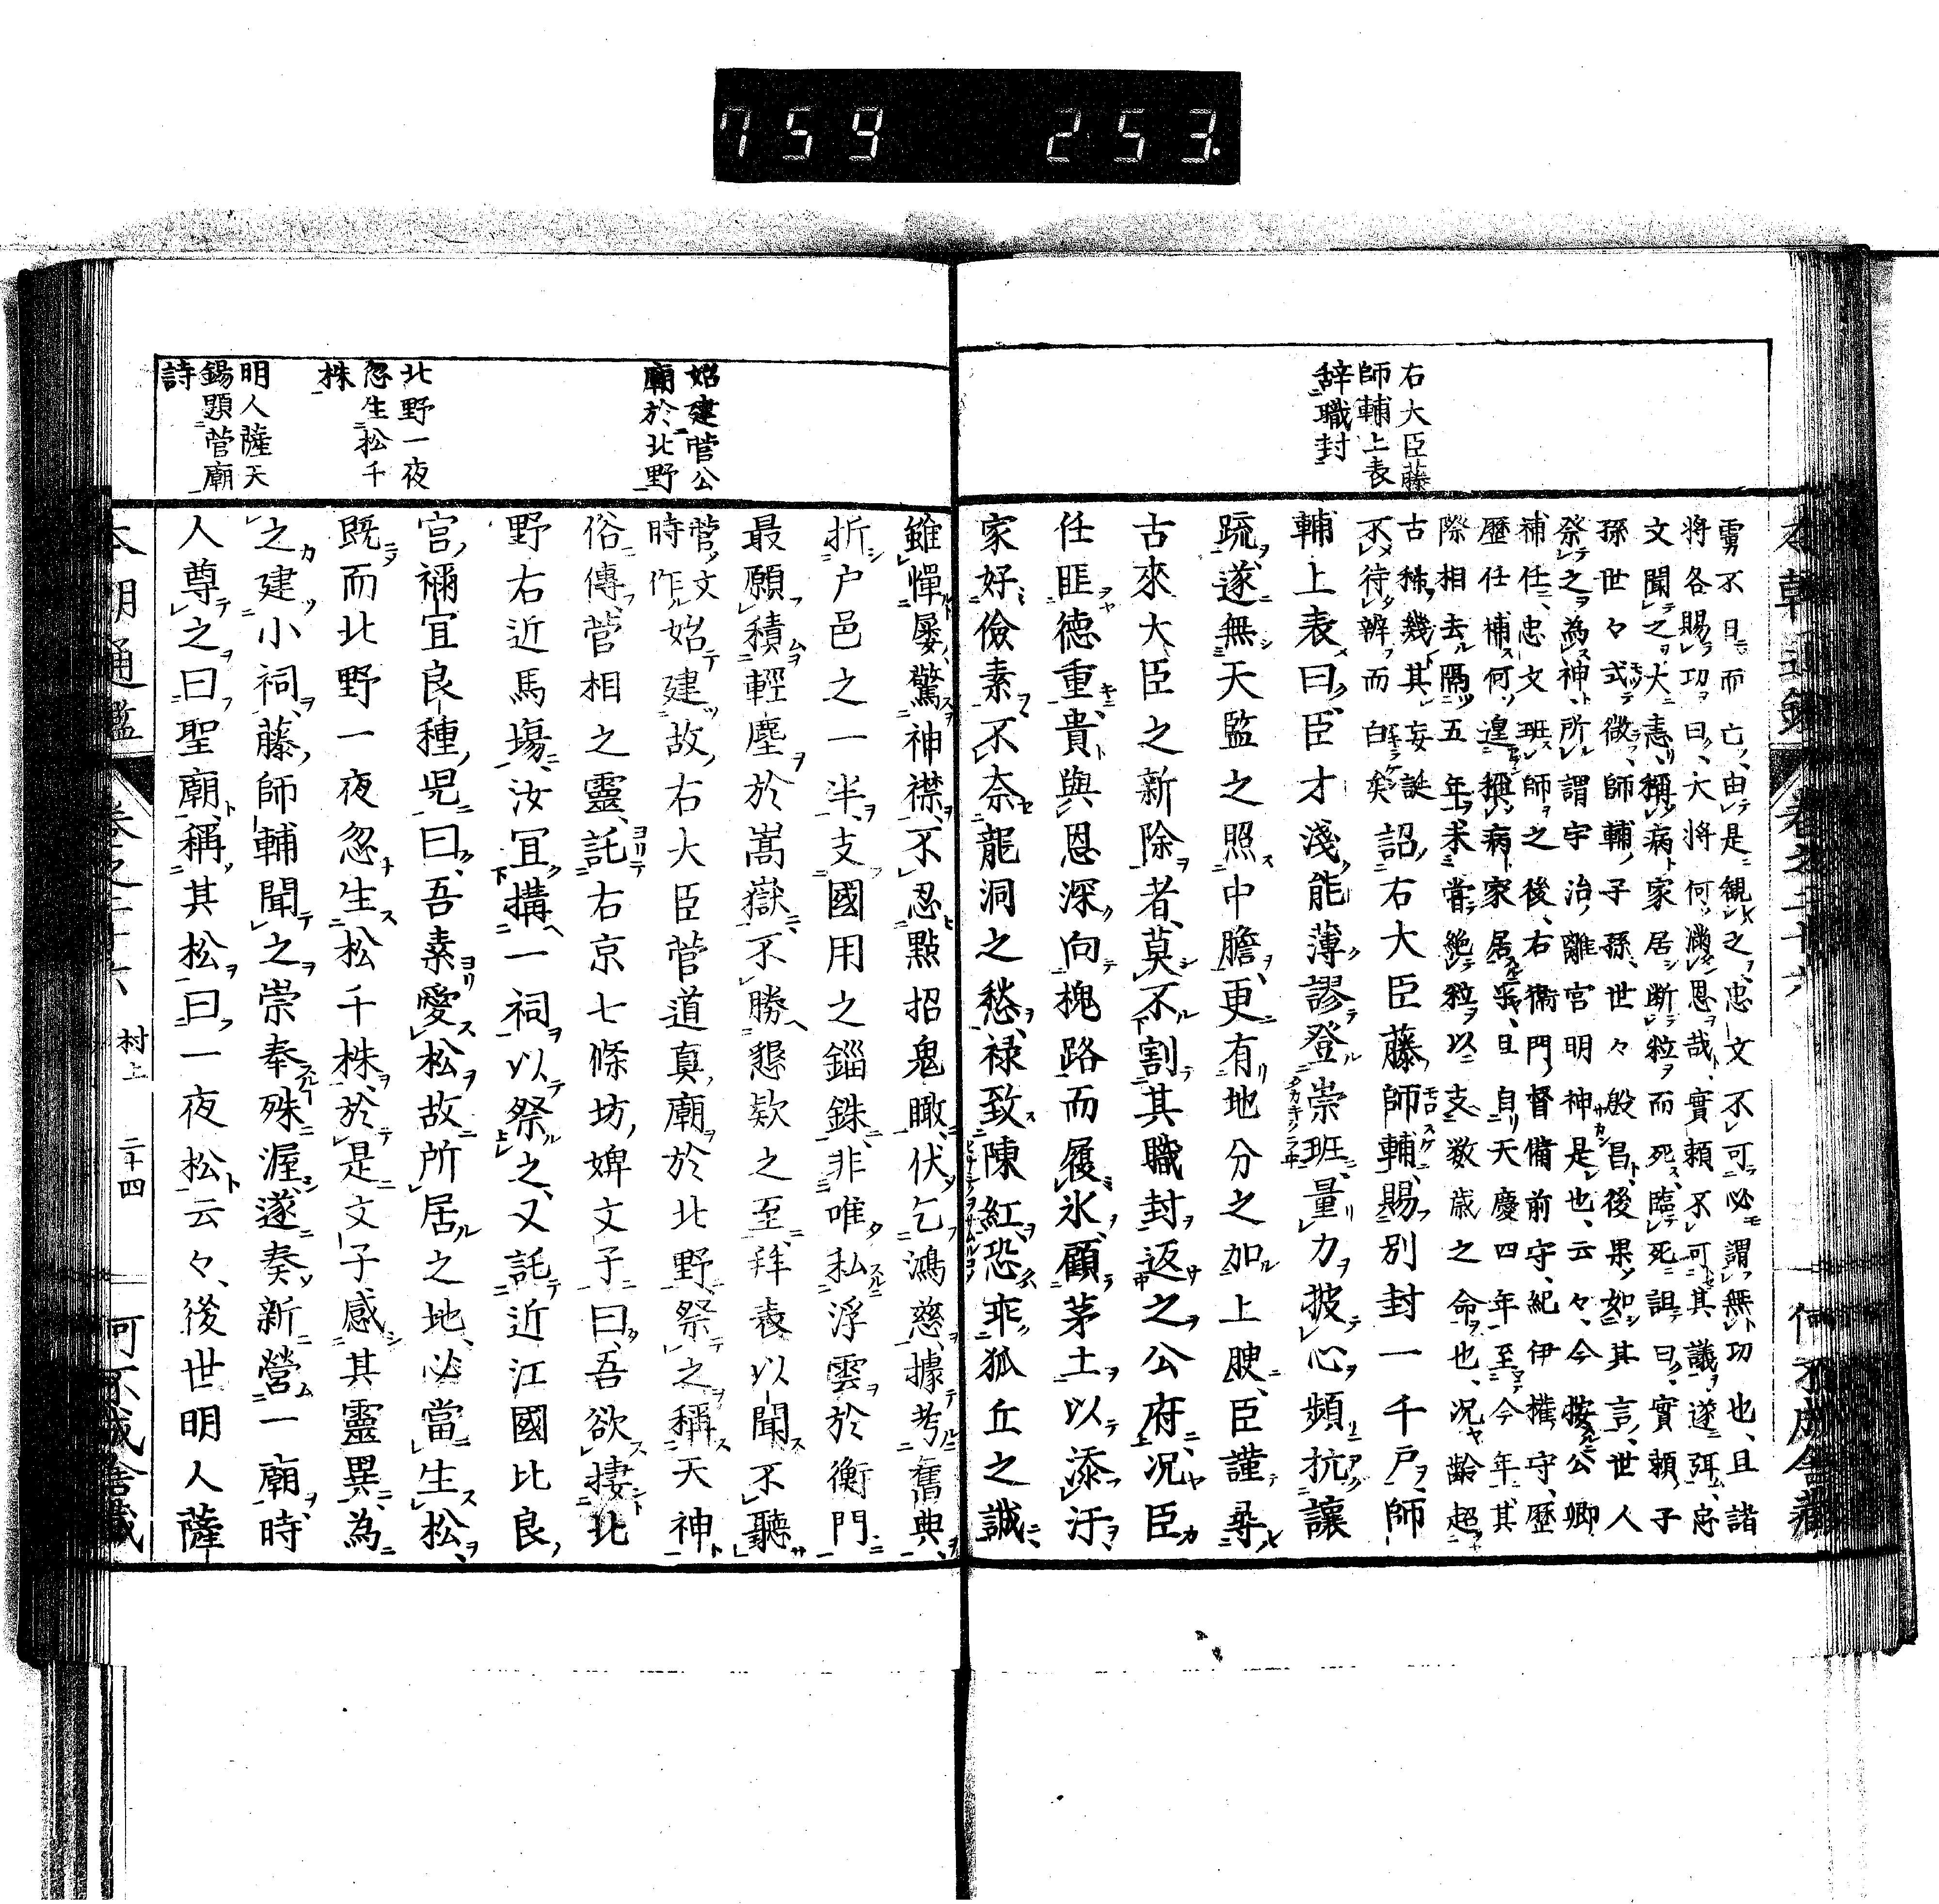 759 253.
右大臣藤
師輔上表
辞職封
虜不日而亡、由是観之、忠文不可必謂無功也、且諸
将各賜功曰、大将何滿恩哉、實頼不可其議、遂弭、忠
文聞之大恚、稱病家居断粒而死、臨死詛曰、實頼子
孫世々式微、師輔子孫、世々般昌、後果如其言、世人
祭之為神、所謂宇治離宮明神是也、云々、今按公卿
補任、忠文班師之後、右衛門督備前守、紀伊權守、歴
歷任補何遑稱病家居乎、且自天慶四年至今年、其
際相去隔五年、未嘗絶粒以支数歳之命也、况齢超
古稀、幾其妄誕
不待辨而白矣
詔右大臣藤師輔賜別封一千戸、師
輔上表曰、臣才淺能薄謬登崇班、量力披心頻抗讓
疏、遂無天監之照中膽、更有地分之加上腴、臣謹尋
古來大臣之新除者、莫不割其職封返之公府、况臣
任匪德重、貴與恩深、向槐路而履氷、顧茅土以添汗、
家好儉素、不奈龍洞之愁、禄致陳紅、恐乖狐丘之誠、
始建菅公
廟於北野
北野一夜
忽生松千
株
明人薩天
錫題菅廟
詩
雖憚屡驚神襟、不忍點招鬼瞰、伏乞鴻慈、據考舊典、
折戸邑之一半、支國用之錙銖、非唯私浮雲於衡門、
最願積輕塵於嵩嶽、不勝懇欵之至、拜表以聞、不聽
菅文
時作
始建故右大臣菅道真廟於北野、祭之稱天神
俗傳、菅相之靈、託右京七條坊婢文子曰、吾欲棲北
野右近馬塲、汝宜搆一祠以祭之、又託近江國比良
宮禰宜良種児曰、吾素愛松、故所居之地、必當生松、
既而北野一夜忽生松千株、於是文子感其靈異、為
之建小祠、藤師輔聞之崇奉殊渥、遂奏新營一廟、時
人尊之曰聖廟、稱其松曰一夜松云々、後世明人薩
本朝通鑑
村上
二十四